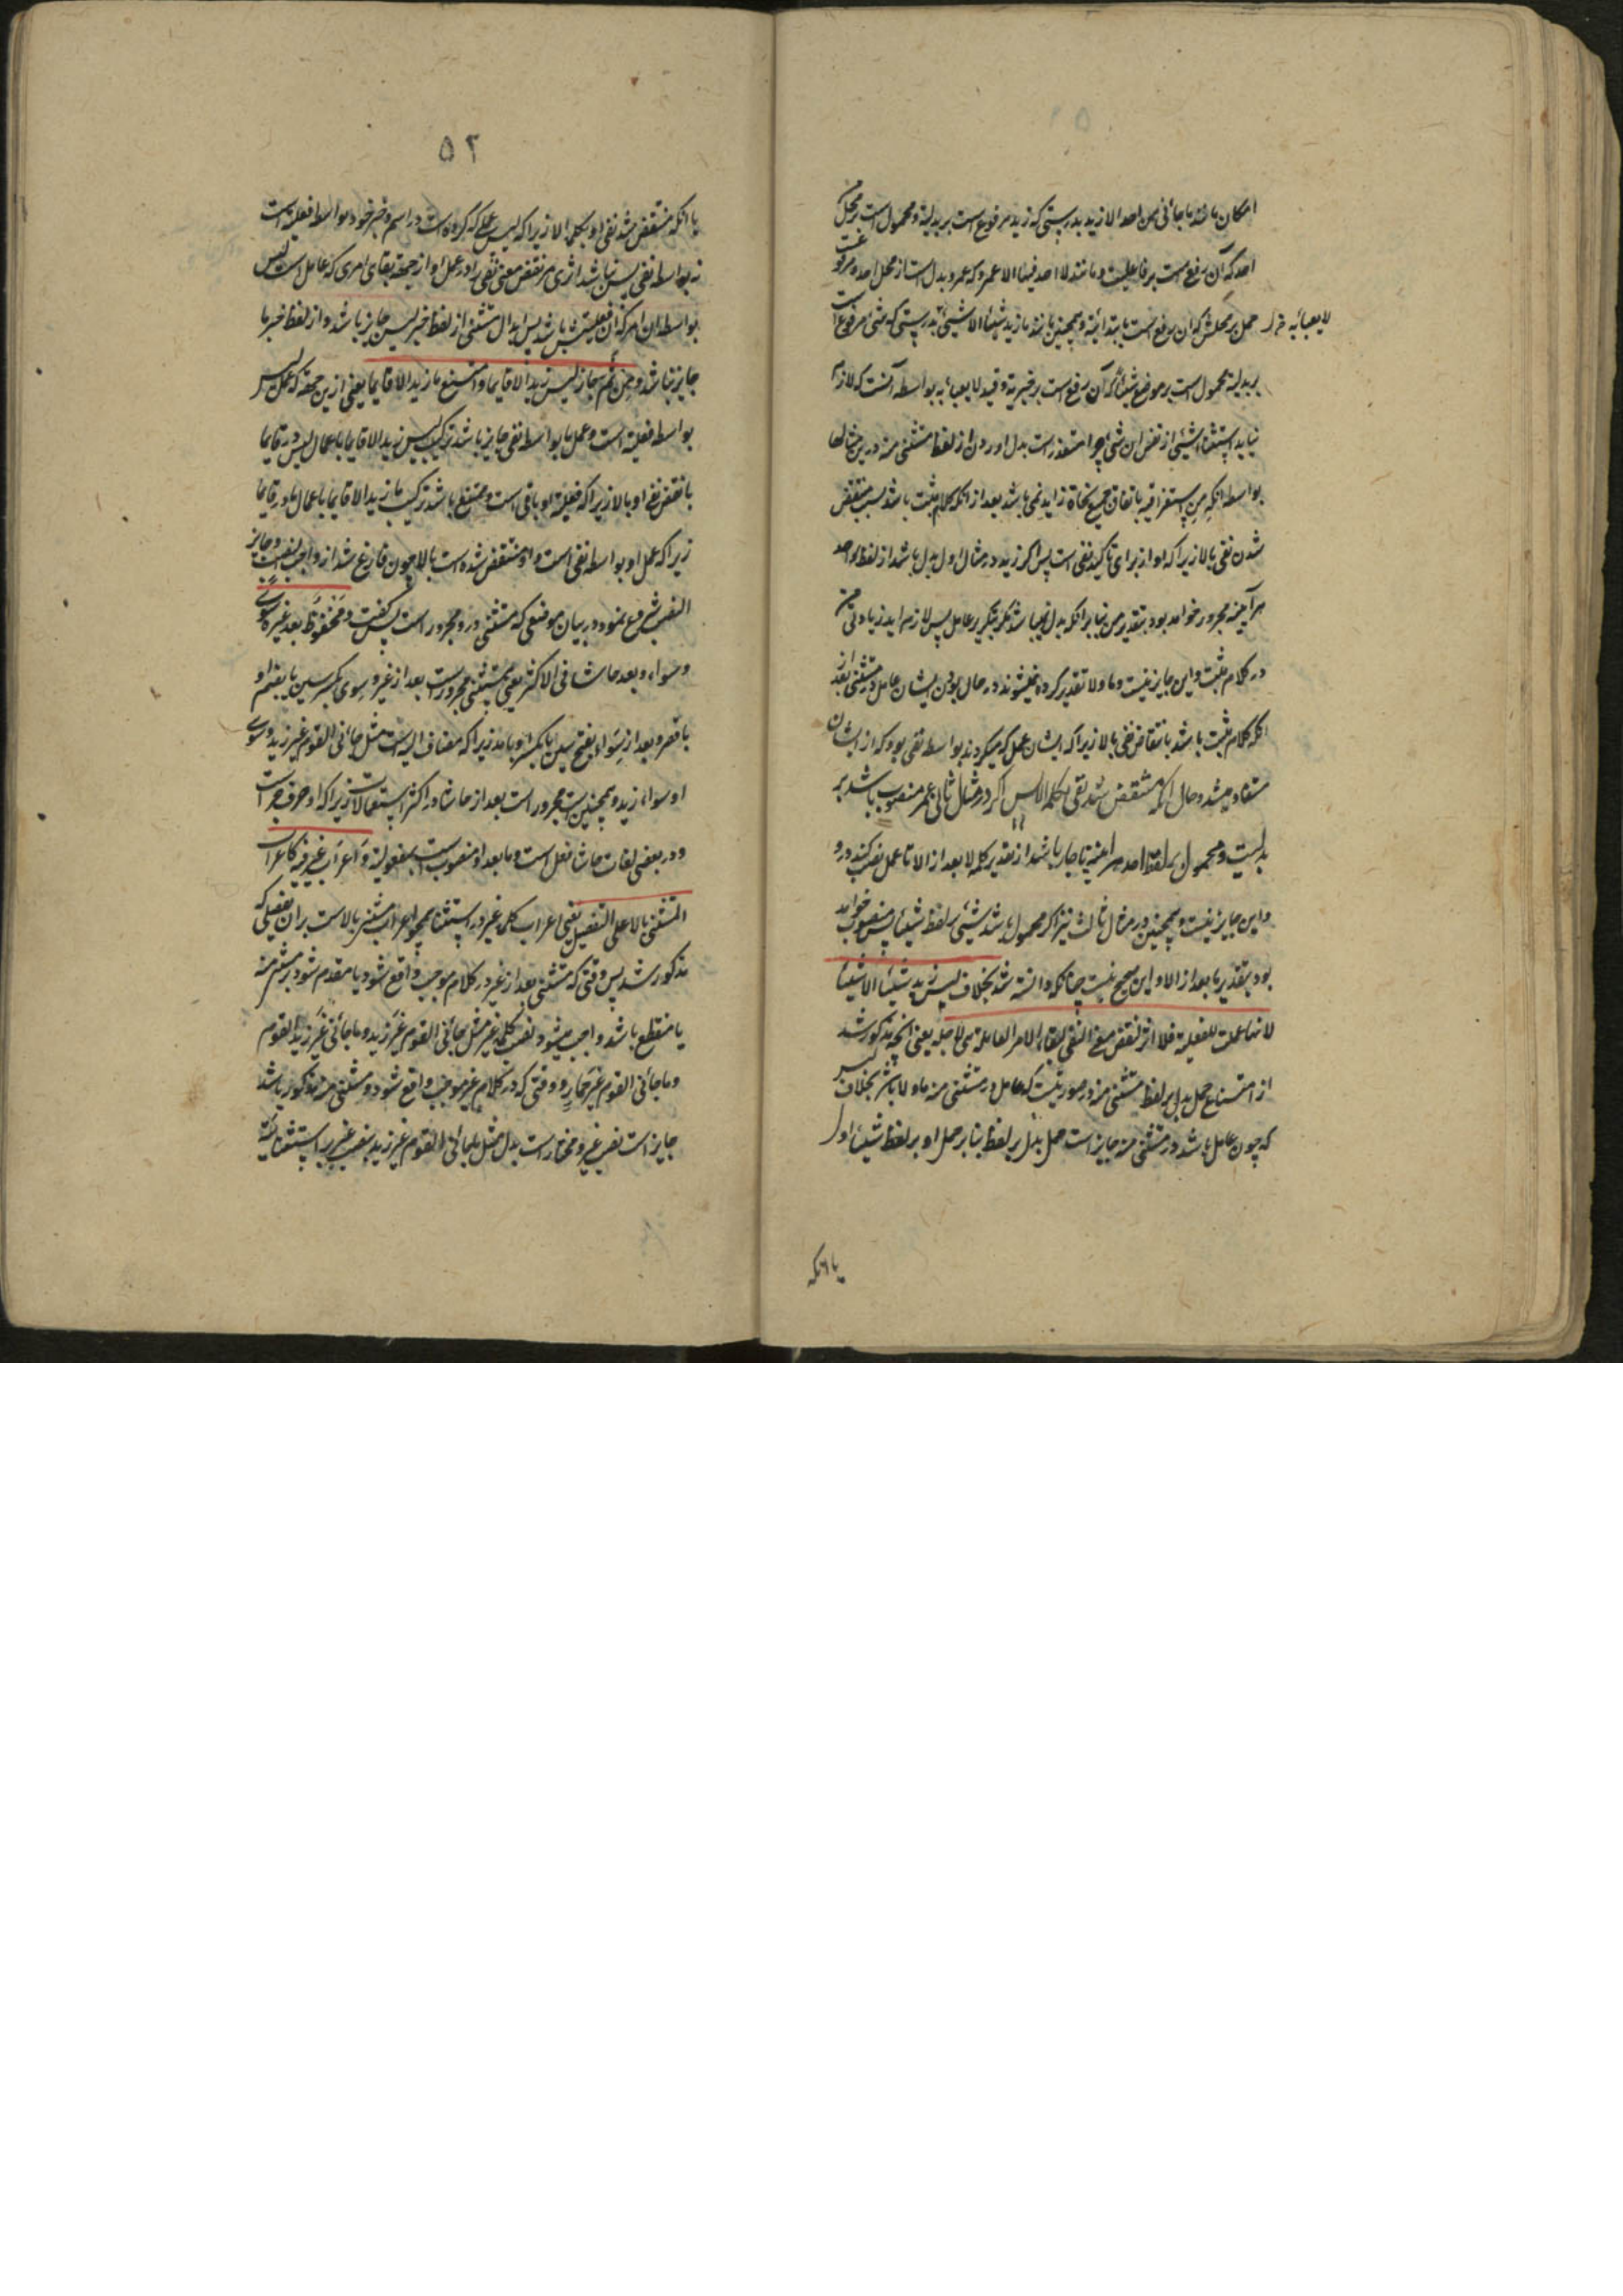 امکان مانند ما جائنی من احد الا زید بدرستی که زید مرفوع است بر بدلیة و محمول است بر محل من
احد که آن رفع است بر فاعلیت و مانند لا احد فیها الا عمرو که عمرو بدل است از محل احد و مرفوعست
حمل بر محلش که آن رفع است بابتدائیة و همچنین مانند ما زید شیئا الا شیئ بدرستی که شئ مرفوع است
لا یعبأ به
بر بدلیة محمول است بر موضع شیئا که آن رفع است بر خبریة و قید لا یعبأ به بواسطه آنست که لازم
نیاید استثناء شیئ از نفس ان شئ چرا متعذر است بدل اوردن از لفظ مستثنی منه درین مثالها
بواسطه انکه من استغراقیه باتفاق جمیع نحاة زاید نمی باشد بعد از انکه کلام مثبت باشد بسبب منتقض
شدن نفی بالا زیرا که او از برای تاکید نفی است پس اگر زید در مثال اول بدل باشد از لفظ احد
هر آینه مجرور خواهد بود بتقدیر من بنابر انکه بدل نمیباشد مگر بتکریر عامل پس لازم اید زیادتی من
در کلام مثبت و این جایز نیست و ما و لا تقدیر کرده نمیشوند در حال بودن ایشان عامل در مستثنی بعد از
انکه کلام مثبت باشد بانتقاض نفی بالا زیرا که ایشان عمل که میکردند بواسطه نفی بود که از ایشان
مستفاد میشد و حال انکه منتقض شد نفی بکلمه الا پس اگر در مثال ثانی عمر منصوب باشد بر
بدلیت و محمول بر لفظ احد هر اینه ناچار باشد از تقدیر کلمه لا بعد از الا تا عمل نصب کند درو
و این جایز نیست و همچنین در مثال ثالث نیز اگر محمول باشد شیئ بر لفظ شیئا پس منصوب خواهد
بود بتقدیر ما بعد از الا و این صحیح نیست چنانکه دانسته شد بخلاف لیس زید شیئا الا شیئا
لانها عملت للفعلیة فلا اثر لنقض معنی النفی لبقاء الامر العاملة هی لاجله یعنی انچه مذکور شد
از امتناع حمل بدل بر لفظ مستثنی منه در صورتیست که عامل در مستثنی منه ما و لا باشد بخلاف لیس
که چون عامل باشد در مستثنی منه جایز است حمل بدل بر لفظ بنابر حمل او بر لفظ شیئا اول
با انکه
۵۲
با انکه منتقض شد نفی او بکلمه الا زیرا که لیس عملی که کرده است در اسم و خبر خود بواسطه فعلیة است
نه بواسطه نفی پس نباشد اثری مر نقض معنی نفی را در عمل او از جهة بقای امری که عامل است لیس
بواسطه ان امر که ان فعلیتش باشد پس ابدال مستثنی از لفظ خبر لیس جایز باشد و از لفظ خبر ما
جایز نباشد و من ثم جاز لیس زید الا قایما و امتنع ما زید الا قایما یعنی ازین جهة که عمل لیس
بواسطه فعلیة است و عمل ما بواسطه نفی جایز باشد ترکیب لیس زید الا قایما باعمال لیس در قایما
با نقض نفی او بالا زیرا که فعلیة او باقی است و ممتنع باشد ترکیب ما زید الا قایما باعمال ما در قایما
زیرا که عمل او بواسطه نفی است و او منتقض شده است بالا چون فارغ شد از واجب النصب و جایز
النصب شروع نمود در بیان موضعی که مستثنی درو مجرور است پس گفت و مخفوض بعد غیر و سوی
و سواء و بعد حاشا فی الاکثر یعنی مستثنی مجرور است بعد از غیر و سوی بکسر سین یا بضم او
با قصر و بعد از سواء بفتح سین یا بکسر او با مد زیرا که مضاف الیه است مثل جائنی القوم غیر زید و سوی
او سواء زید و همچنین مجرور است بعد از حاشا در اکثر استعمالات زیرا که او حرف جر است
و در بعضی لغات حاشا فعل است و ما بعد او منصوب است بمفعولیة و اعراب غیر فیه کاعراب
المستثنی بالا علی التفصیل یعنی اعراب کلمه غیر در استثنا همچو اعراب مستثنی بالا است بران تفصیلی که
مذکور شد پس وقتی که مستثنی بعد از غیر در کلام موجب واقع شود یا مقدم شود بر مستثنی منه
یا منقطع باشد واجب میشود نصب کلمه غیر مثل جائنی القوم غیر زید و ما جائنی غیر زید القوم
و ما جائنی القوم غیر حمار و وقتی که در کلام غیر موجب واقع شود و مستثنی منه مذکور باشد
جایز است نصب غیر و مختار است بدل مثل ما جائنی القوم غیر زید بنصب غیر بر استثنائیة